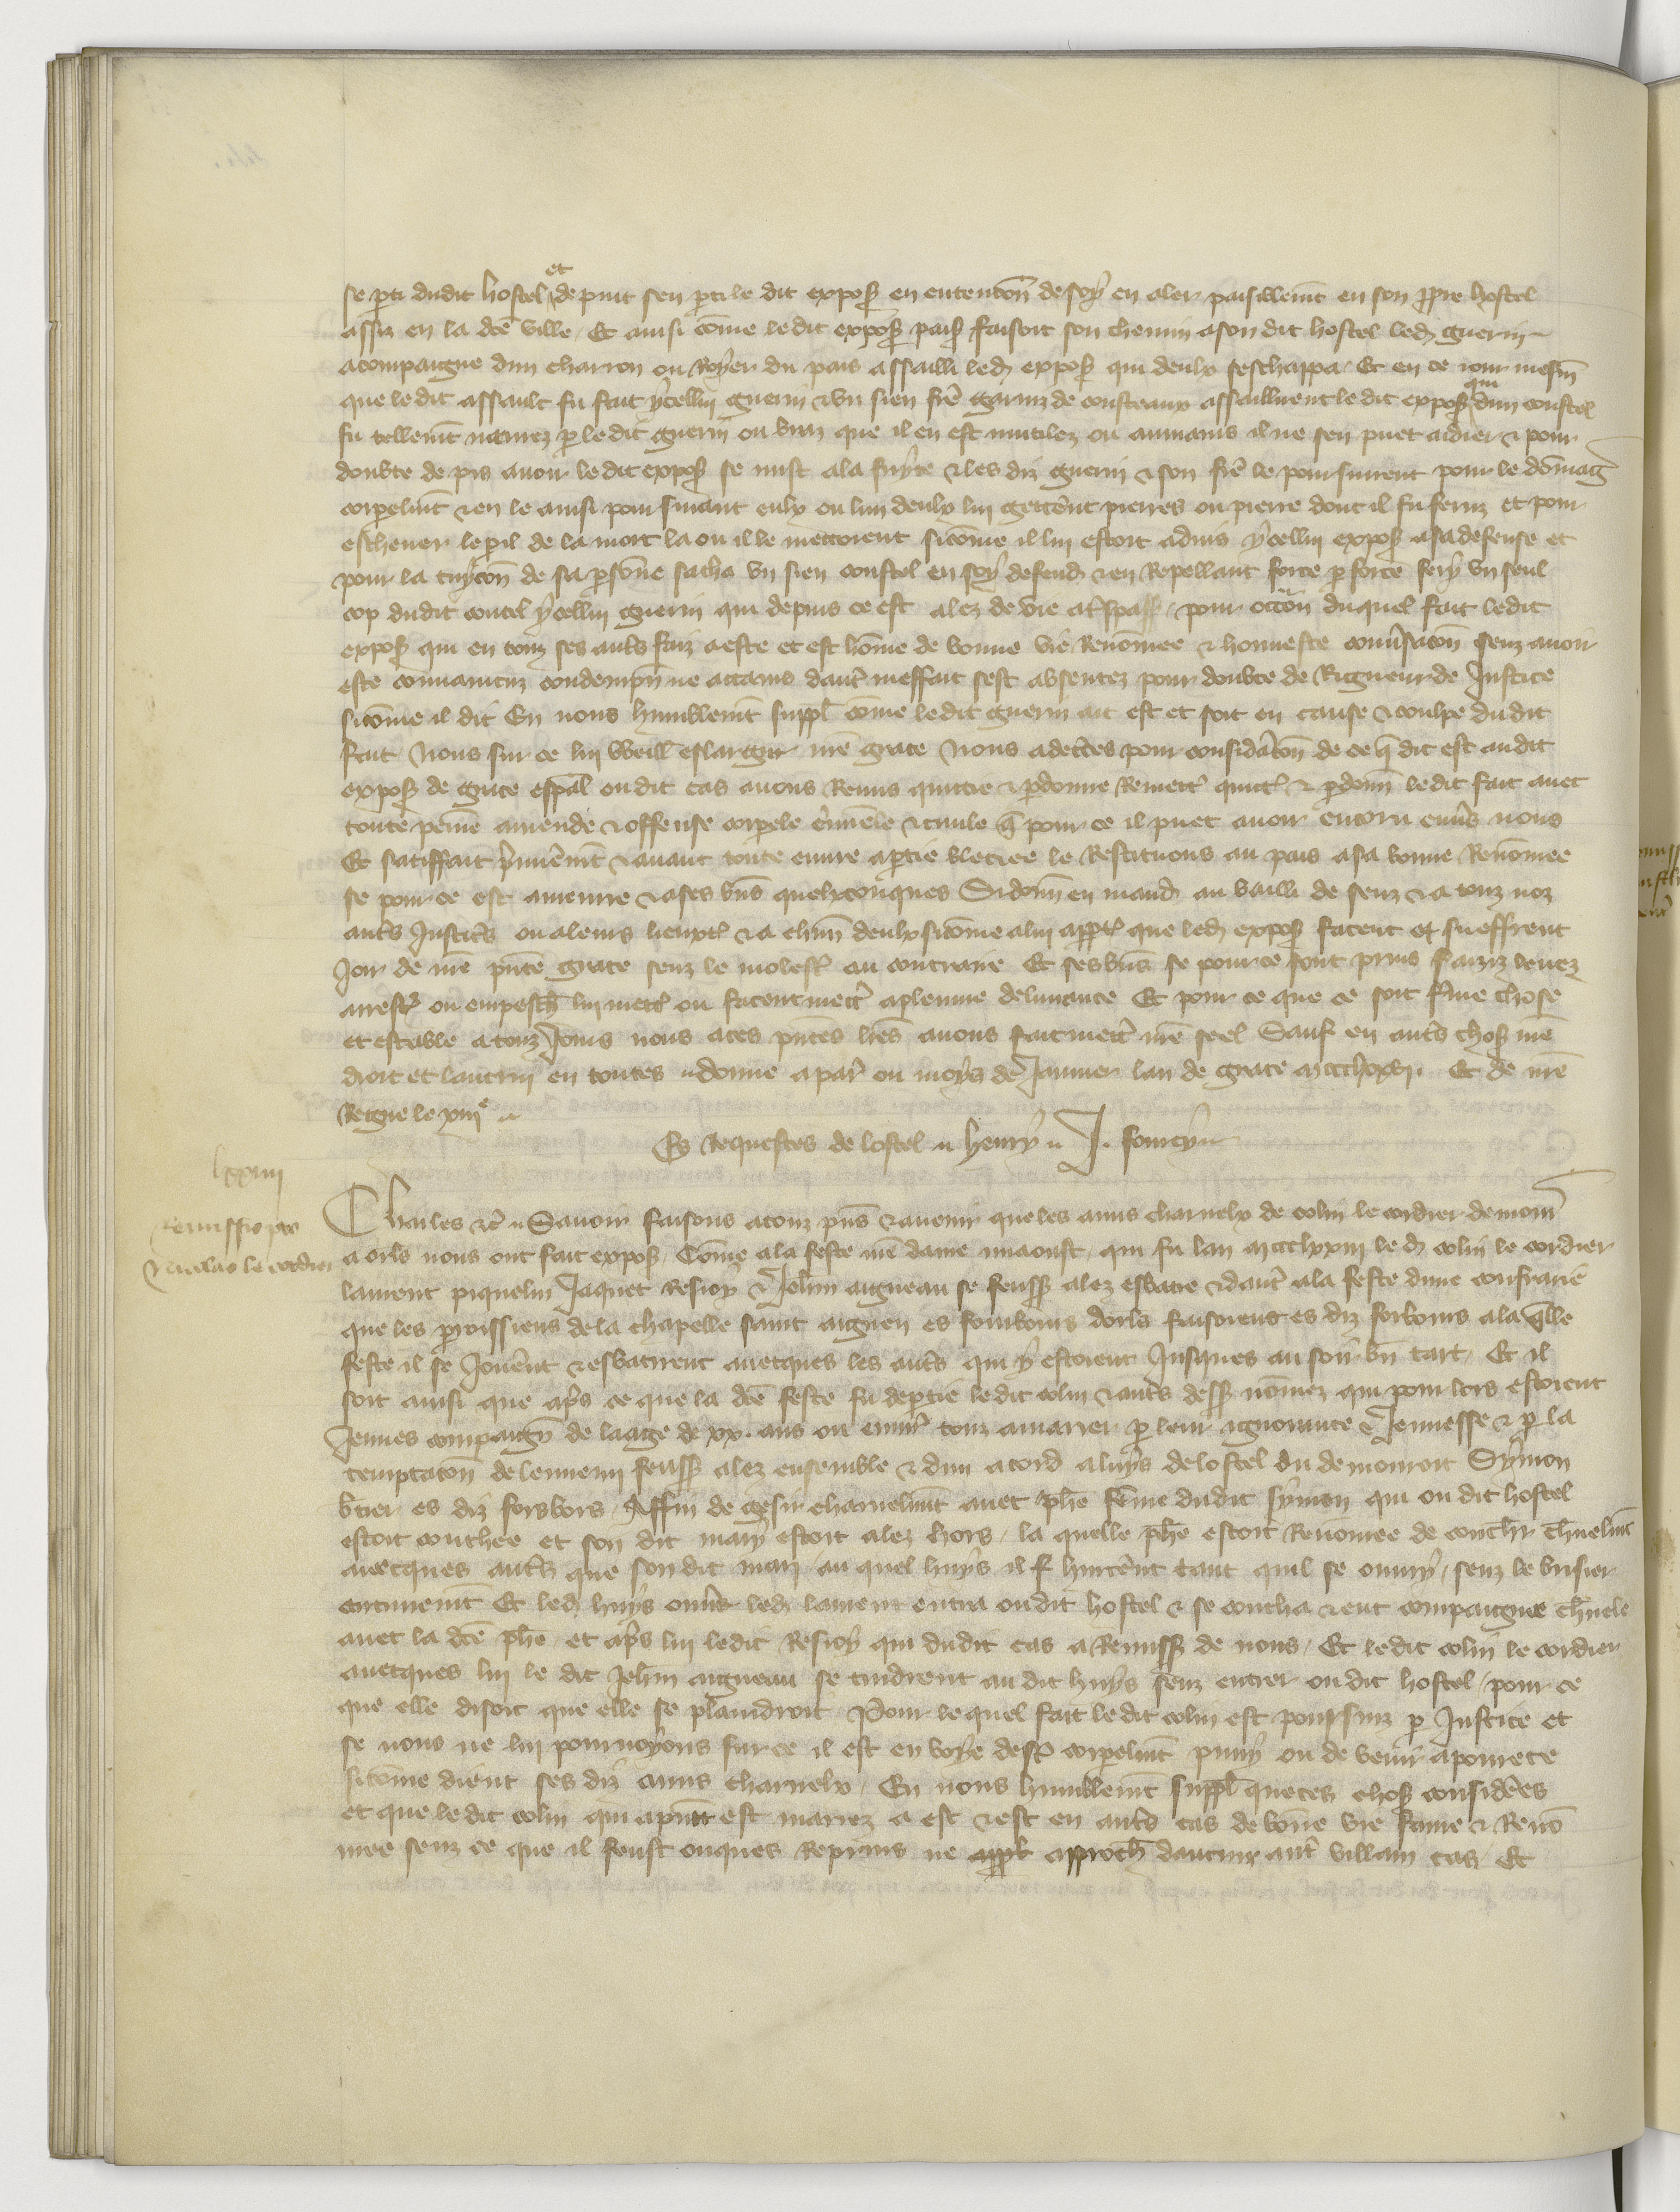 se pti dudit hostel et depuit sen pti le dit expos en entencon de soy en aler paisiblemt en son ppre hostel
assiz en la dce ville Et ainsi come le dit expos paisi faisoit son chemin a son dit hostel led guerin
acompaigne dun charron ou Royer du pais assailli led expos qui deulx seschappa Et en ce jour mesm
que le dit assault fu fait ycellui guerin & un sien fre garniz de cousteaux assaillirent le dit expos qui dun coustel
fu tellemt navrez p le dit guerin ou braz que il en est mutilez ou aumains il ne sen puet aidier & pour
doubte de pis avoir le dit expos se mist a la fuyte & les diz guerin & son fre le poursuirent pour le domag
corpelmt & en le ainsi poursuiant eulx ou lun deulx lui getterent pierres ou pierre dont il fu feruz et pour
eschever le peril de la mort la ou il le mettoient sicome il lui estoit advis ycellui expos a sa defense et
pour la tuycon de sa psonne sacha un sien coustel en soy defend & en Repellant force p force fery un seul
cop dudit coutel ycellui guerin qui depuis ce est alez de vie a trespass pour occon duquel fait le dit
expos qui en touz ses auts faiz a este et est home de bonne vie Renomee & honneste conversacon senz avoir
este convaincuz condempn ne actains daut meffait sest absentez pour doubte de Rigueur de Justice
sicome il dit En nous humblemt suppl come le dit guerin ait est et soit en cause & coulpe dudit
fait Nous sur ce lui vueill eslargir nre grace Nous adectes pour consideracon de ce q dit est audit
expos de grace espal ou dit cas avons Remis quittie & pdonne Remett quitt & pdonn le dit fait avec
toute peine amende & offense corpele criminele & civile q pour ce il puet avoir encoru envers nous
Et satiffait premieremt & avant toute euvre a ptie bleciee le Restituons au pais a sa bonne Renomee
se pour ce est amenrie & a ses bns quelxconques Si donn en mand au bailli de senz & a touz noz
auts Justiciers ou a leurs lieuxt & a chun deulx sicome a lui appt que led expos facent et sueffrent
Joir de nre pnte grace senz le molest au contraire Et ses bns se pour ce sont prins saiziz levez
arrest ou empesch lui mett ou facent mett a plenne delivrance Et pour ce que ce soit ferme chose
et estable a touz Jours nous a ces pntes lres avons fait mett nre seel Sauf en auts chos nre
droit et lautrui en toutes donne a par ou moys de Janvier lan de grace mccclxxvi Et de nre
Regne le xiiie
Es Requestes de lostel henry J. fourcy
lxxiiii
Remissio pro
Nicolao le cordier
Charles &c Savoir faisons a touz pns & avenir que les amis charnelx de colin le cordier demour
a orls nous ont fait expos Come a la feste nre dame miaoust qui fu lan mccclxxiii le d colin le cordier
laurent piquelin Jaquet Resioy & Jehn aigneau se feuss alez esbatre & dauc a la feste dune confrarie
que les parroissiens de la chapelle saint aignen es forsbours dorls faisoient es diz forbours a la qlle
feste il se Jouerent & esbatirent avecques les auts qui y estoient Jusques au soir bn tart Et il
soit ainsi que aps ce que la dce feste fu deptie le dit colin & auts dess nomez qui pour lors estoient
Jeunes compaign de laage de xx. ans ou envir touz a marier p leur ignorance & Jeunesse & p la
temptacon de lennemi feuss alez ensemble & dun acord a luys de lostel du demouroit Symon
btier es diz forsbors Affin de gesir charnelmt avec phe feme dudit symon qui ou dit hostel
estoit couchee et son dit mary estoit alez hors la quelle phe estoit Renomee de couchr chnelmt
avecques auts que son dit mary au quel huys il f hurterent tant quil se ouvry senz le brisier
entirement Et led huys ouvert led laurent entra ou dit hostel & se coucha & eut compaignie chnele
avec la dce phe et aps lui le dit Resioy qui dudit cas a Remiss de nous Et le dit colin le cordier
avecques lui le dit Jehn aigneau se tindrent au dit huys senz entrer ou dit hostel pour ce
que elle disoit que elle se plaindroit Pour le quel fait le dit colin est poursuiz p Justice et
se nous ne lui pourvoyons sur ce il est en voye dest corpelmt puny ou de venir a povrete
sicome dient ses diz amis charnelx En nous humblemt suppl que ces chos considees
et que le dit colin qui a pnt est mariez a est & est en auts cas de bone vie fame & Reno
mee senz ce que il feust onques Reprins ne approch daucun aut villain cas Et